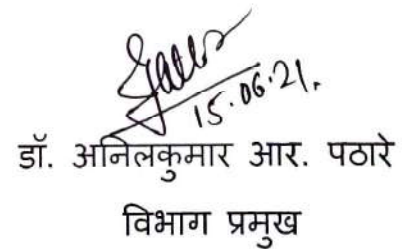 15.06.21.
डॉ. अनिलकुमार आर. पठारे
विभाग प्रमुख